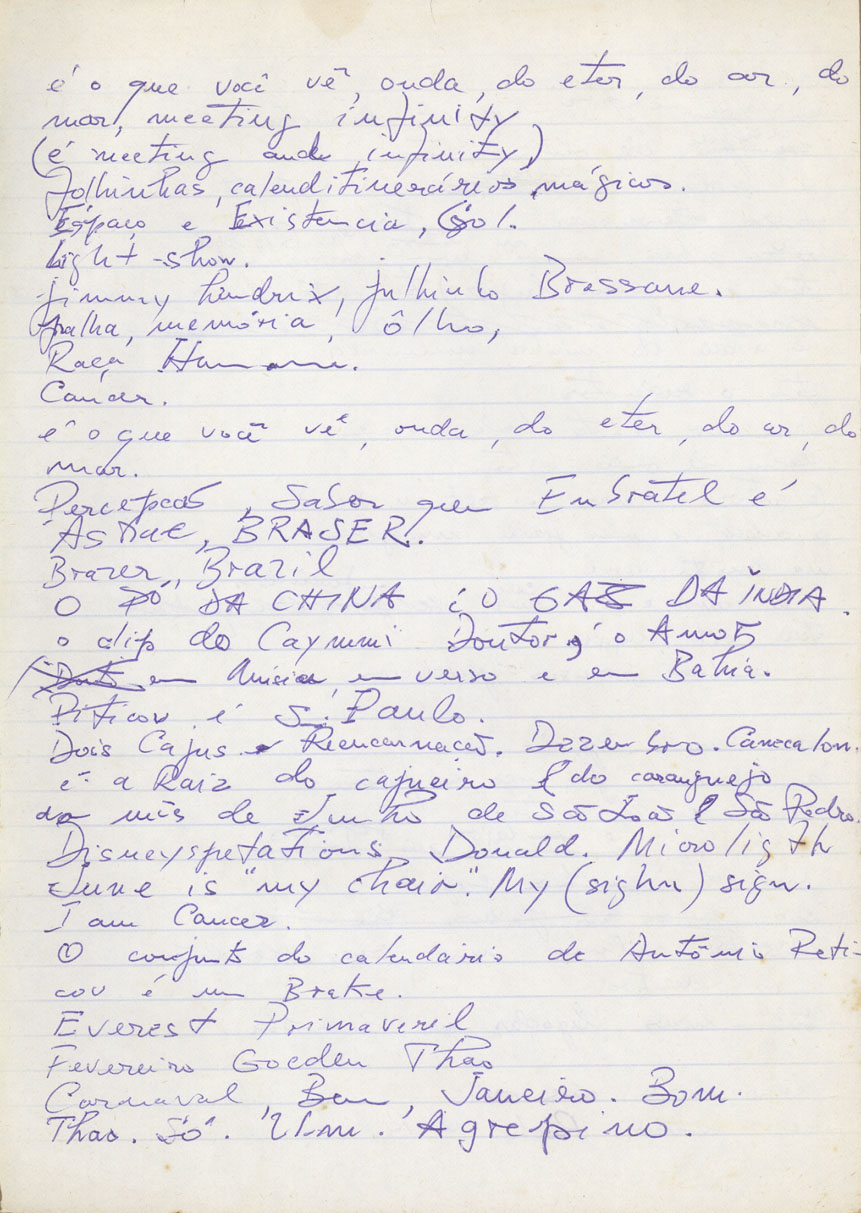 é o que você vê, onda, do eter, do ar, do
mar, meeting infinity
(é meeting onde infinity)
folhinhas, calenditinerários mágicos.
Espaço e Existencia, Gol.
Light-show.
jimmy hendrix, julhinho Bressane.
falha, memória, ôlho,
Raça Humana.
Cancer.
é o que você vê, onda, do eter, do ar, do
mar.
Percepção, Saber quem Embratel é
BRASER.
Brazer, Brazil
O PÓ DA CHINA é O GAZ DA ÍNDIA.
o clip do Caymmi Doutor, o Amor
em verso e em Bahia.
Piticov é S. Paulo.
Dois Cajus Reencarnação. Dezembro. Canecalon.
é a Raiz do cajueiro & do caranguejo
do mês de Junho de São João & São Pedro.
Disneyspetations Donald. Microligth
June is "my chair". My (sighn) sign.
I am Cancer.
O conjunto do calendário de Antônio Peti-
cov é um Brake.
Everest Primaveril
Fevereiro Goeden Thao
Carnaval, Bem, Janeiro. Bom.
Thao. Só. Um. Agrepino.